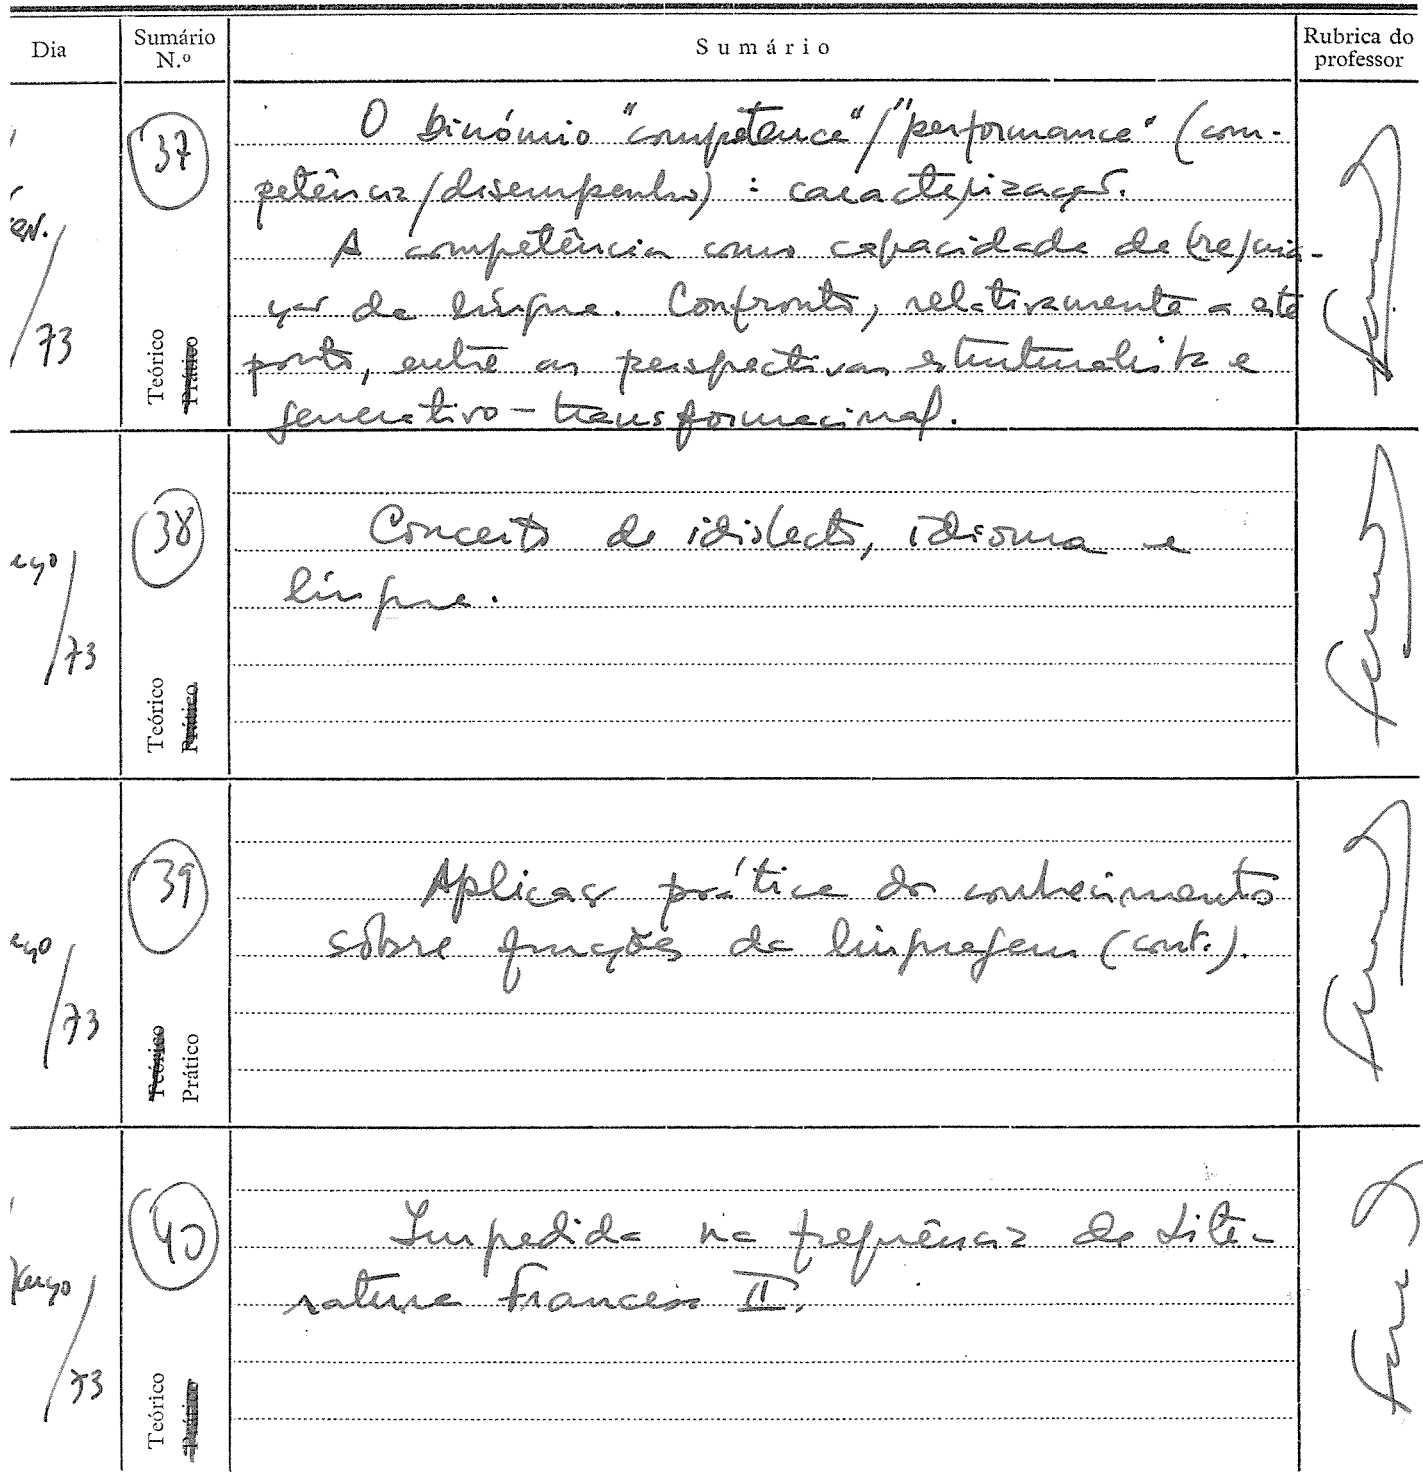 Dia
Sumário
N.º
Sumário
Rubrica do
professor
37
O binómio "competence"/"performance" (com-
petência/disempenho): caracterização.
A competência como capacidade de (re)cria-
ção da língua. Confronto, relativamente a este
ponto, entre as perspectivas estruturalista e
generativo-transformacional.
/73
Teórico
Prático
38
Conceito de idiolecto, idioma e
língua.
/73
Teórico
Prático
39
Aplicação prática do conhecimento
sôbre funções da linguagem (cont.).
/73
Teórico
Prático
40
Impedida na frequência de Lite-
ratura Francesa II.
/73
Teórico
Prático